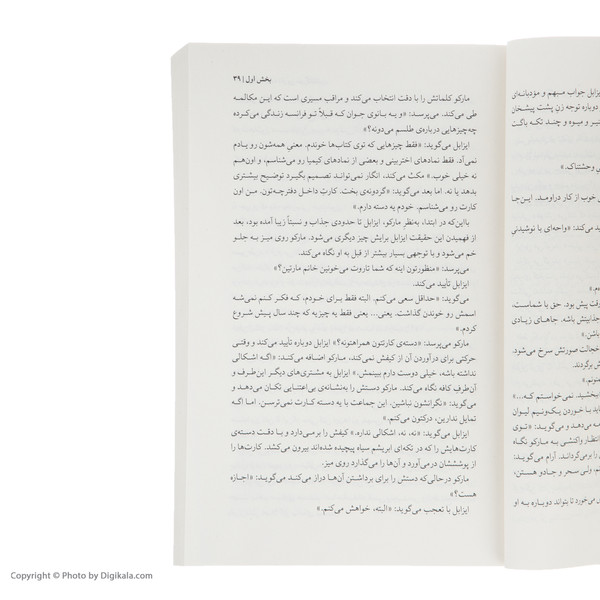 بخش اول | ۳۹
مارکو کلماتش را با دقت انتخاب می‌کند و مراقب مسیری است که این مکالمه
طی می‌کند. می‌پرسد: «و یه بانوی جوان که قبلاً تو فرانسه زندگی می‌کرده
چه‌چیزهایی درباره‌ی طلسم می‌دونه؟»
ایزابل می‌گوید: «فقط چیزهایی که توی کتاب‌ها خوندم. معنی همه‌شون رو یادم
نمی‌آد. فقط نمادهای اختربینی و بعضی از نمادهای کیمیا رو می‌شناسم، و اون‌هم
نه خیلی خوب.» مکث می‌کند، انگار نمی‌تواند تصمیم بگیرد توضیح بیشتری
بدهد یا نه. اما بعد می‌گوید: «گردونه‌ی بخت. کارتِ داخل دفترچه‌تون. من اون
کارت رو می‌شناسم. خودم یه دسته دارم.»
بااین‌که در ابتدا، به‌نظر مارکو، ایزابل تا حدودی جذاب و نسبتاً زیبا آمده بود، بعد
از فهمیدن این حقیقت ایزابل برایش چیز دیگری می‌شود. مارکو روی میز به جلو
خم می‌شود و با توجهی بسیار بیشتر از قبل به او نگاه می‌کند.
می‌پرسد: «منظورتون اینه که شما تاروت می‌خونین خانم مارتین؟»
ایزابل تأیید می‌کند.
می‌گوید: «حداقل سعی می‌کنم. البته فقط برای خودم، که فکر کنم نمی‌شه
اسمش رو خوندن گذاشت. یعنی... یعنی فقط یه چیزیه که چند سال پیش شروع
کردم.»
مارکو می‌پرسد: «دسته‌ی کارتتون همراهتونه؟» ایزابل دوباره تأیید می‌کند و وقتی
حرکتی برای درآوردن آن از کیفش نمی‌کند، مارکو اضافه می‌کند: «اگه اشکالی
نداشته باشه، خیلی دوست دارم ببینمش.» ایزابل به مشتری‌های دیگر این‌طرف و
آن‌طرفِ کافه نگاه می‌کند. مارکو دستش را به‌نشانه‌ی بی‌اعتنایی تکان می‌دهد و
می‌گوید: «نگرانشون نباشین. این جماعت با یه دسته کارت نمی‌ترسن. اما اگه
تمایل ندارین، درکتون می‌کنم.»
ایزابل می‌گوید: «نه، نه، اشکالی نداره.» کیفش را برمی‌دارد و با دقت دسته‌ی
کارت‌هایش را که در تکه‌ای ابریشم سیاه پیچیده شده‌اند بیرون می‌کشد. کارت‌ها را
از پوششان درمی‌آورد و آن‌ها را می‌گذارد روی میز.
مارکو درحالی‌که دستش را برای برداشتن آن‌ها دراز می‌کند می‌گوید: «اجازه
هست؟»
ایزابل با تعجب می‌گوید: «البته، خواهش می‌کنم.»
ایزابل جواب مبهم و مؤدبانه‌ای
دوباره توجه زن پشت پیشخان
و میوه و چند تکه باگت
وحشتناک.»
خوب از کار دراومد. این‌جا
می‌کند: «واحه‌ای با نوشیدنی
پیش بود. حق با شماست،
جذابیتش باشه. جاهای زیادی
باشن.»
خجالت صورتش سرخ می‌شود.
برگردند.
ببخشید. نمی‌خواستم که...»
با خوردن یه‌کوچیم لیوان
می‌دهد و می‌گوید: «توی
انتظار واکنشی به مارکو نگاه
را برمی‌گرداند. آرام می‌گوید:
ولی سحر و جادو هستن،
می‌خورد تا بتواند دوباره به او
Copyright © Photo by Digikala.com